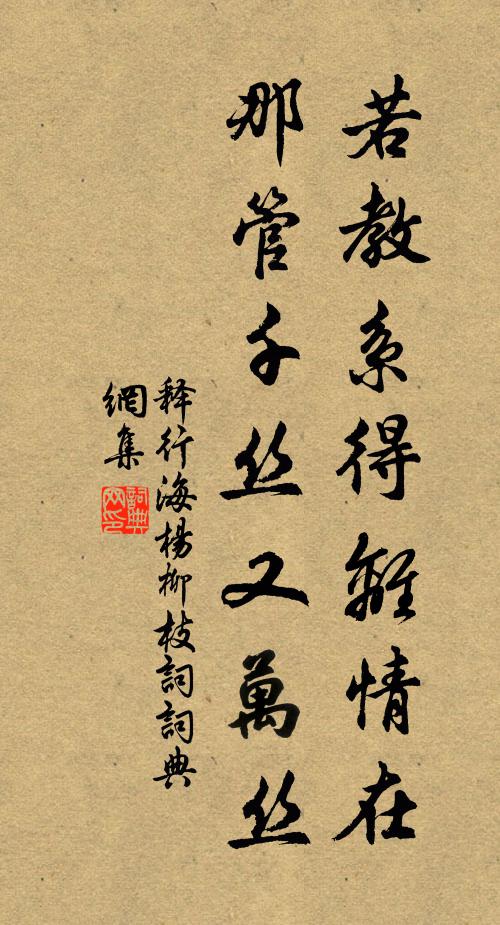 若教系得離情在
那管千丝又萬丝
释行海楊柳枝詞詞典
網集
詞典
网印